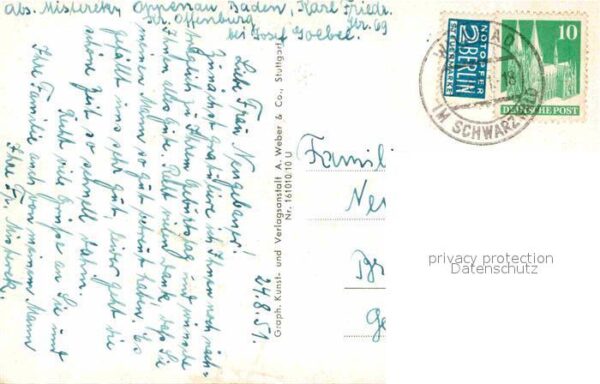 Abs. Misterek, Oppenau, Baden, Karl Friedr.
Kr. Offenburg
Str. 69
bei Josef Goebel.
24.8.51.
Liebe Frau Neugebauer!
Zunächst gratuliere ich Ihnen noch nach-
träglich zu Ihrem Geburtstag und wünsche
Ihnen alles Gute. Recht vielen Dank, daß Sie
meinen Mann so gut betreut haben. Es
gefällt uns sehr gut, leider geht die
schöne Zeit so schnell dahin.
Recht viele Grüße an Sie und
Ihre Familie auch von meinem Mann
Ihre Fr. Misterek.
Graph. Kunst- und Verlagsanstalt A. Weber & Co., Stuttgart
Nr. 161010.10 U
Famili
Ne
Br
Ge
NOTOPFER
2 BERLIN
STEUERMARKE
10
DEUTSCHE POST
IM SCHWARZ
privacy protection
Datenschutz